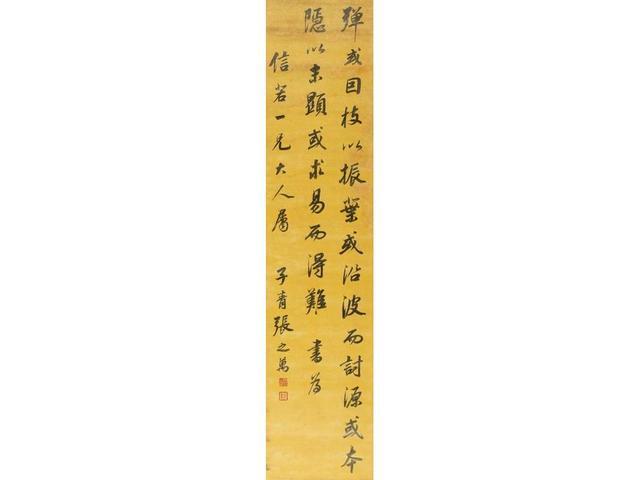 弹或因枝以振葉或沿波而討源或本
隱以末顯或求易而得難 書為
信若一兄大人屬 子青張之萬